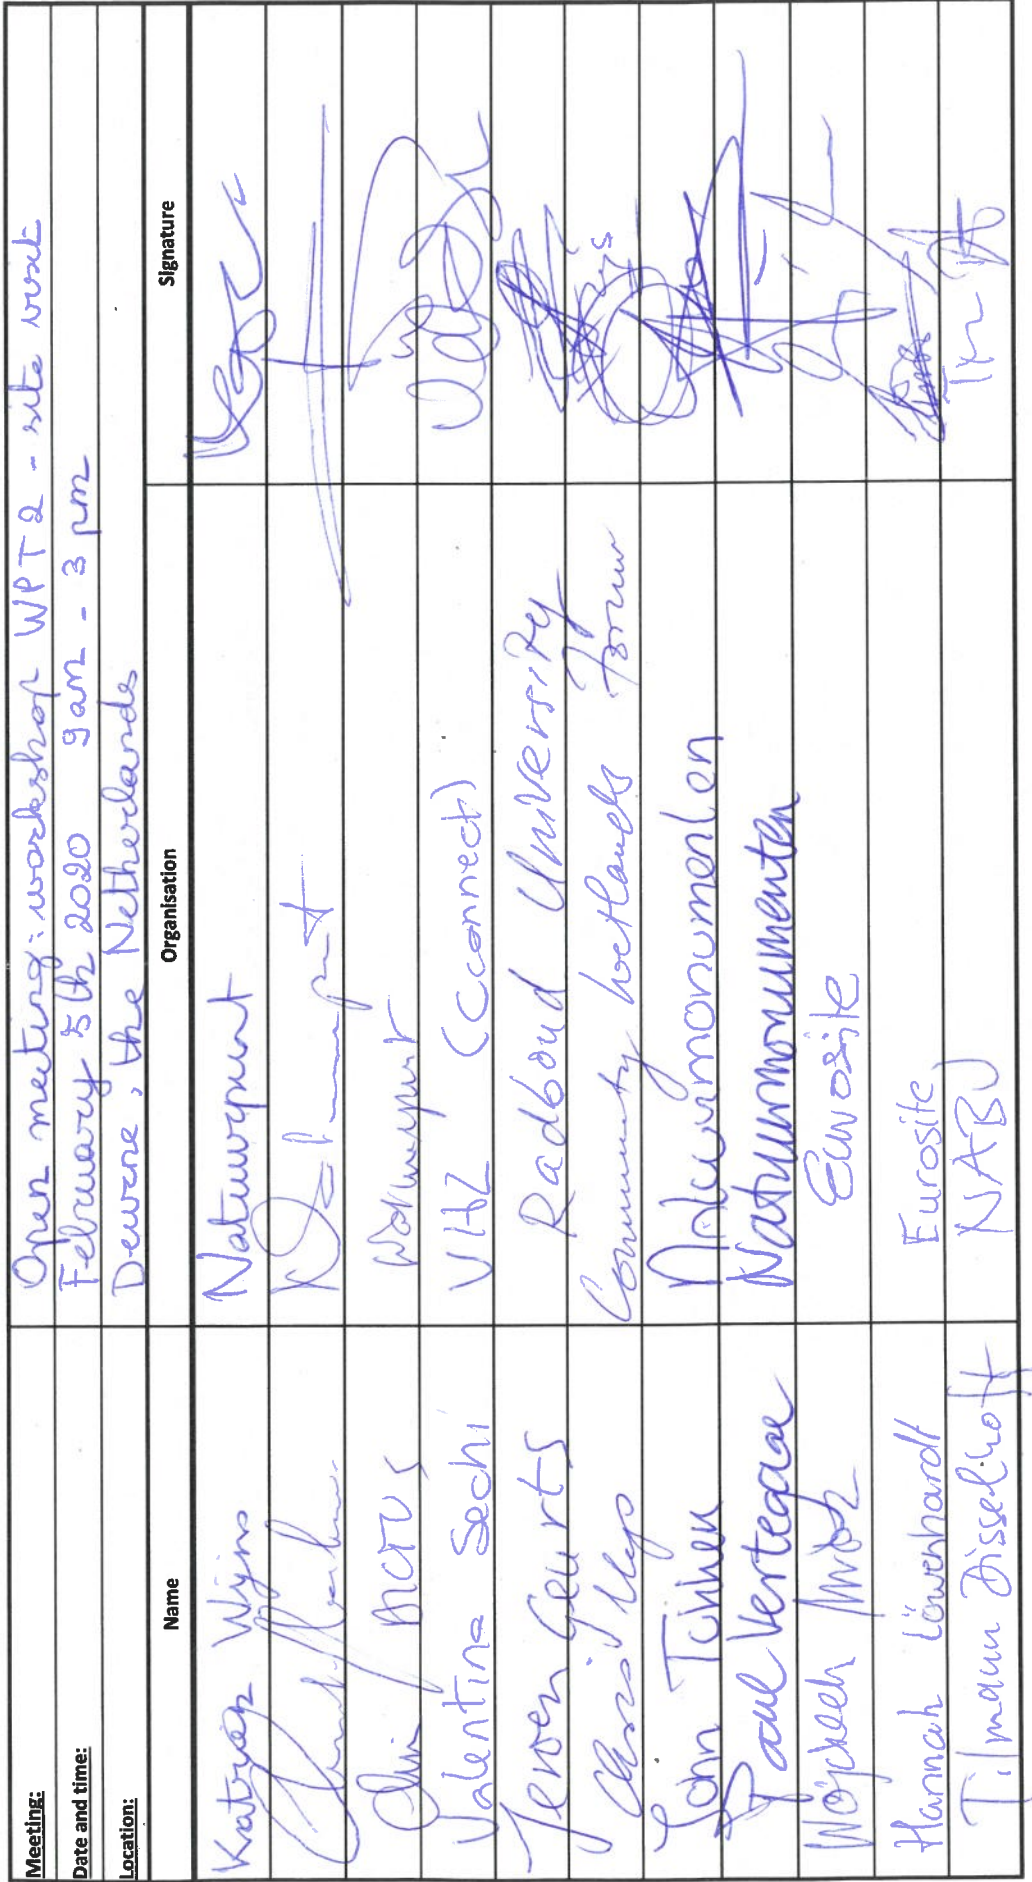 Meeting: Open meeting: workshop WPT2 - site visit
Date and time: February 5th 2020 9am - 3 pm
Location: Deurne, the Netherlands
Name Organisation Signature
Katrien Wijns Natuurpunt
Natuurpunt
Natuurpunt
Valentina Sechi VHZ (Cconnect)
Jeroen Geurts Radboud University
Chris Uys Community Wetlands Forum
Natuurmonumenten
Paul Vertegaal Natuurmonumenten
Wojciech Mróz Eurosite
Hannah Löwenhardt Eurosite
Tilmann Disselhoff NABU